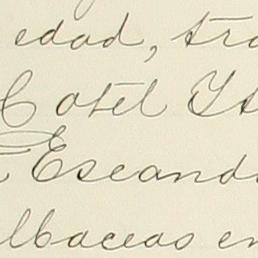 edad, tra
Cotel It
Escand
lbaceas en